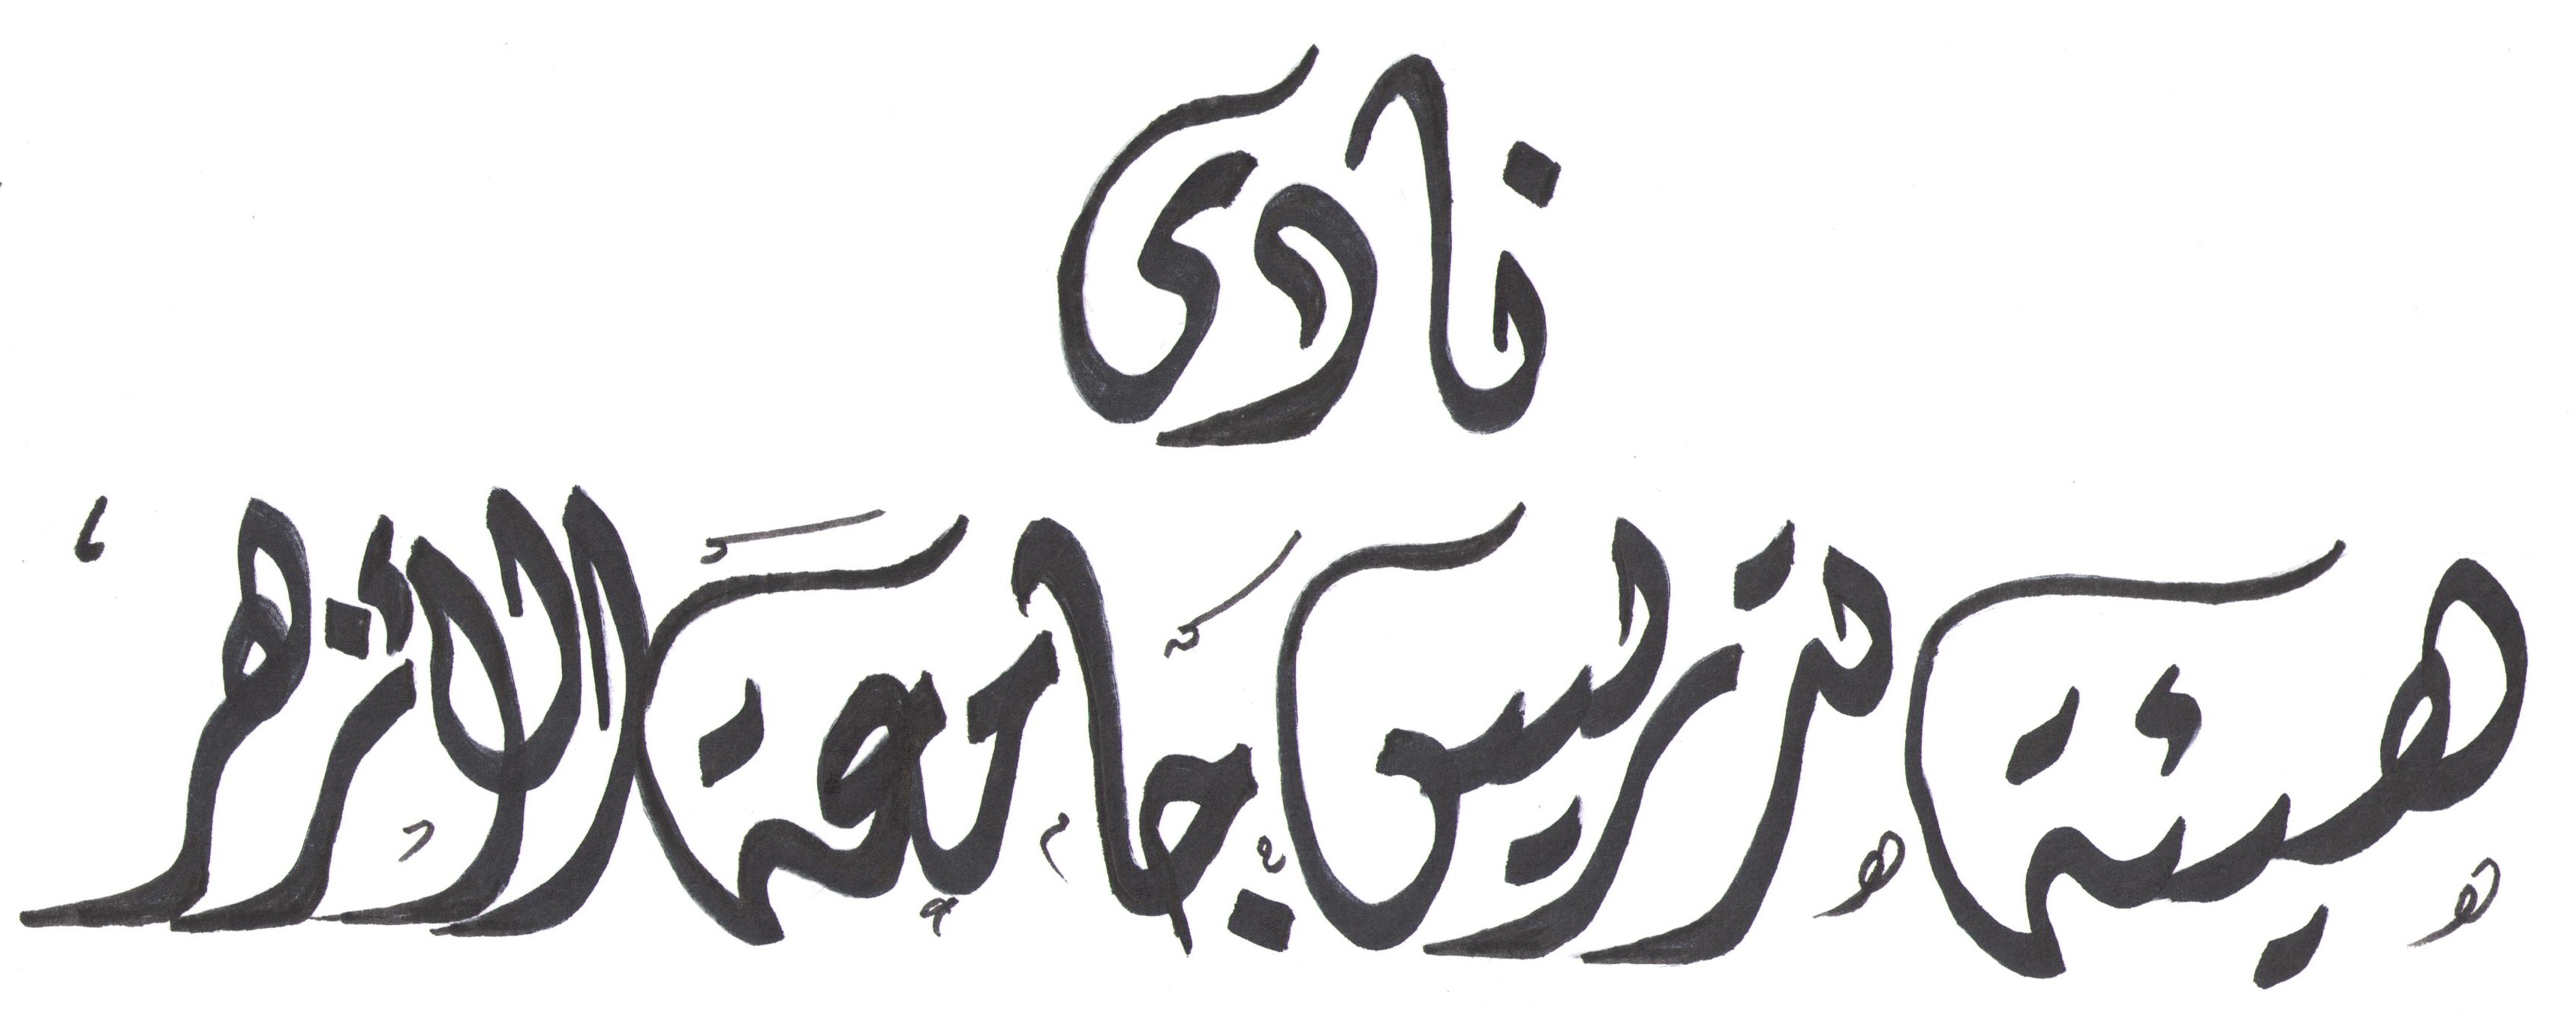 نادى
هيئة تدريس جامعة الأزهر